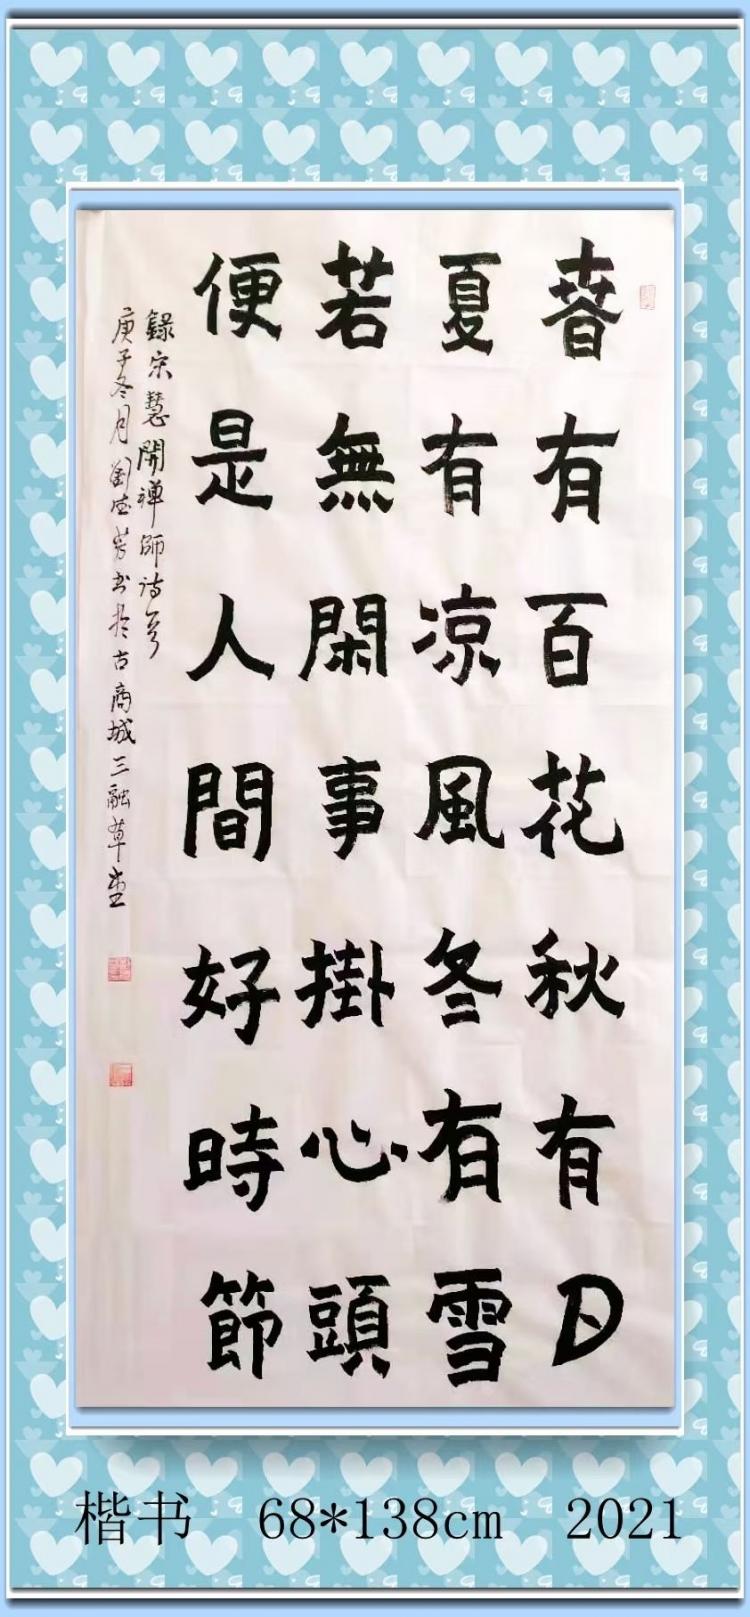 春有百花秋有月
夏有凉風冬有雪
若無閑事掛心頭
便是人間好時節
録宋慧開禅師诗一首
庚子冬月劉宏芳书於古商城三融草堂
楷书 68*138cm 2021